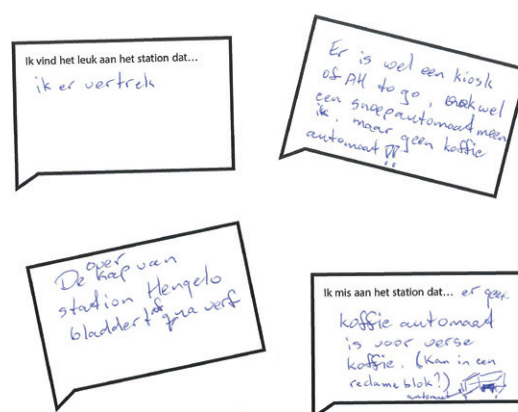 Ik vind het leuk aan het station dat...
ik er vertrek
Er is wel een kiosk
of AH to go, ook wel
een snoepautomaat meen
ik, maar geen koffie
automaat !!
De over kap van
station Hengelo
bladdert af qua verf
Ik mis aan het station dat... er geen
koffie automaat
is voor verse
koffie. (Kan in een
reclame blok?)
automaat